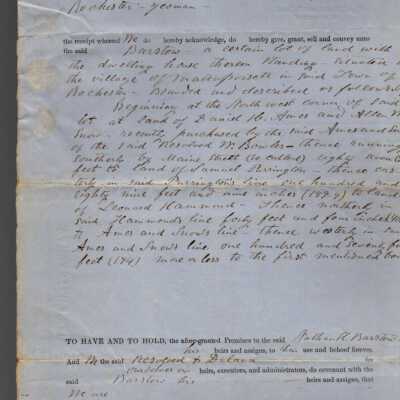 Rochester - yeoman -
the receipt whereof We do hereby acknowledge, do hereby give, grant, sell and convey unto
the said Barstow - a certain lot of land with
the dwelling house thereon standing - situated in
the village of Mattapoisett in said Town of
Rochester - Bounded and described as follows
Beginning at the North west corner of said
lot at land of Daniel H. Ames and Allen
Snow - recently purchased by the said Ames and
of the said Resolved W. Bowles - thence running
Southerly by Main Street (so called) eighty
feet to land of Samuel Purrington - thence
in said Purrington's line one hundred and
eighty nine feet and nine inches (189.9) to land
of Leonard Hammond - thence northerly in
said Hammond's line forty feet and four inches
to Ames and Snow's line - thence westerly in
Ames and Snow's line one hundred and seventy four
feet (174) more or less to the first mentioned
TO HAVE AND TO HOLD, the afore-granted Premises to the said Nathan H. Barstow
his heirs and assigns, to his use and behoof forever.
And We the said Resolved & for
heirs, executors, and administrators, do covenant with the
said Barstow his heirs and assigns, that
We are